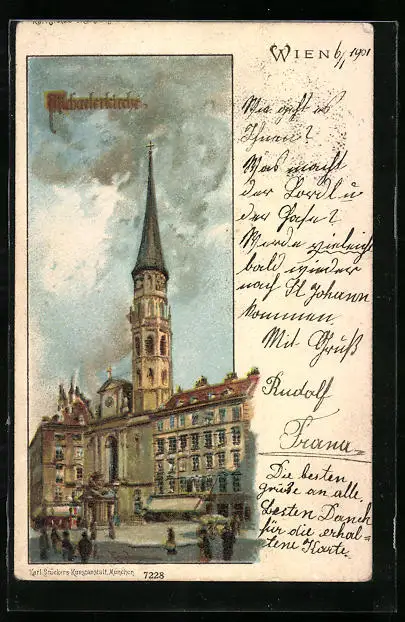 Michaelerkirche.
WIEN 6/1 1901
Wie geht es
Ihnen?
Was macht
der Lordl u
der Hase?
Werde vieleicht
bald wieder
nach St Johann
kommen.
Mit Gruß
Rudolf
Franu
Die besten
grüße an alle,
besten Danck
für die erhal-
tene Karte.
Karl Stückers Kunstanstalt, München. 7228